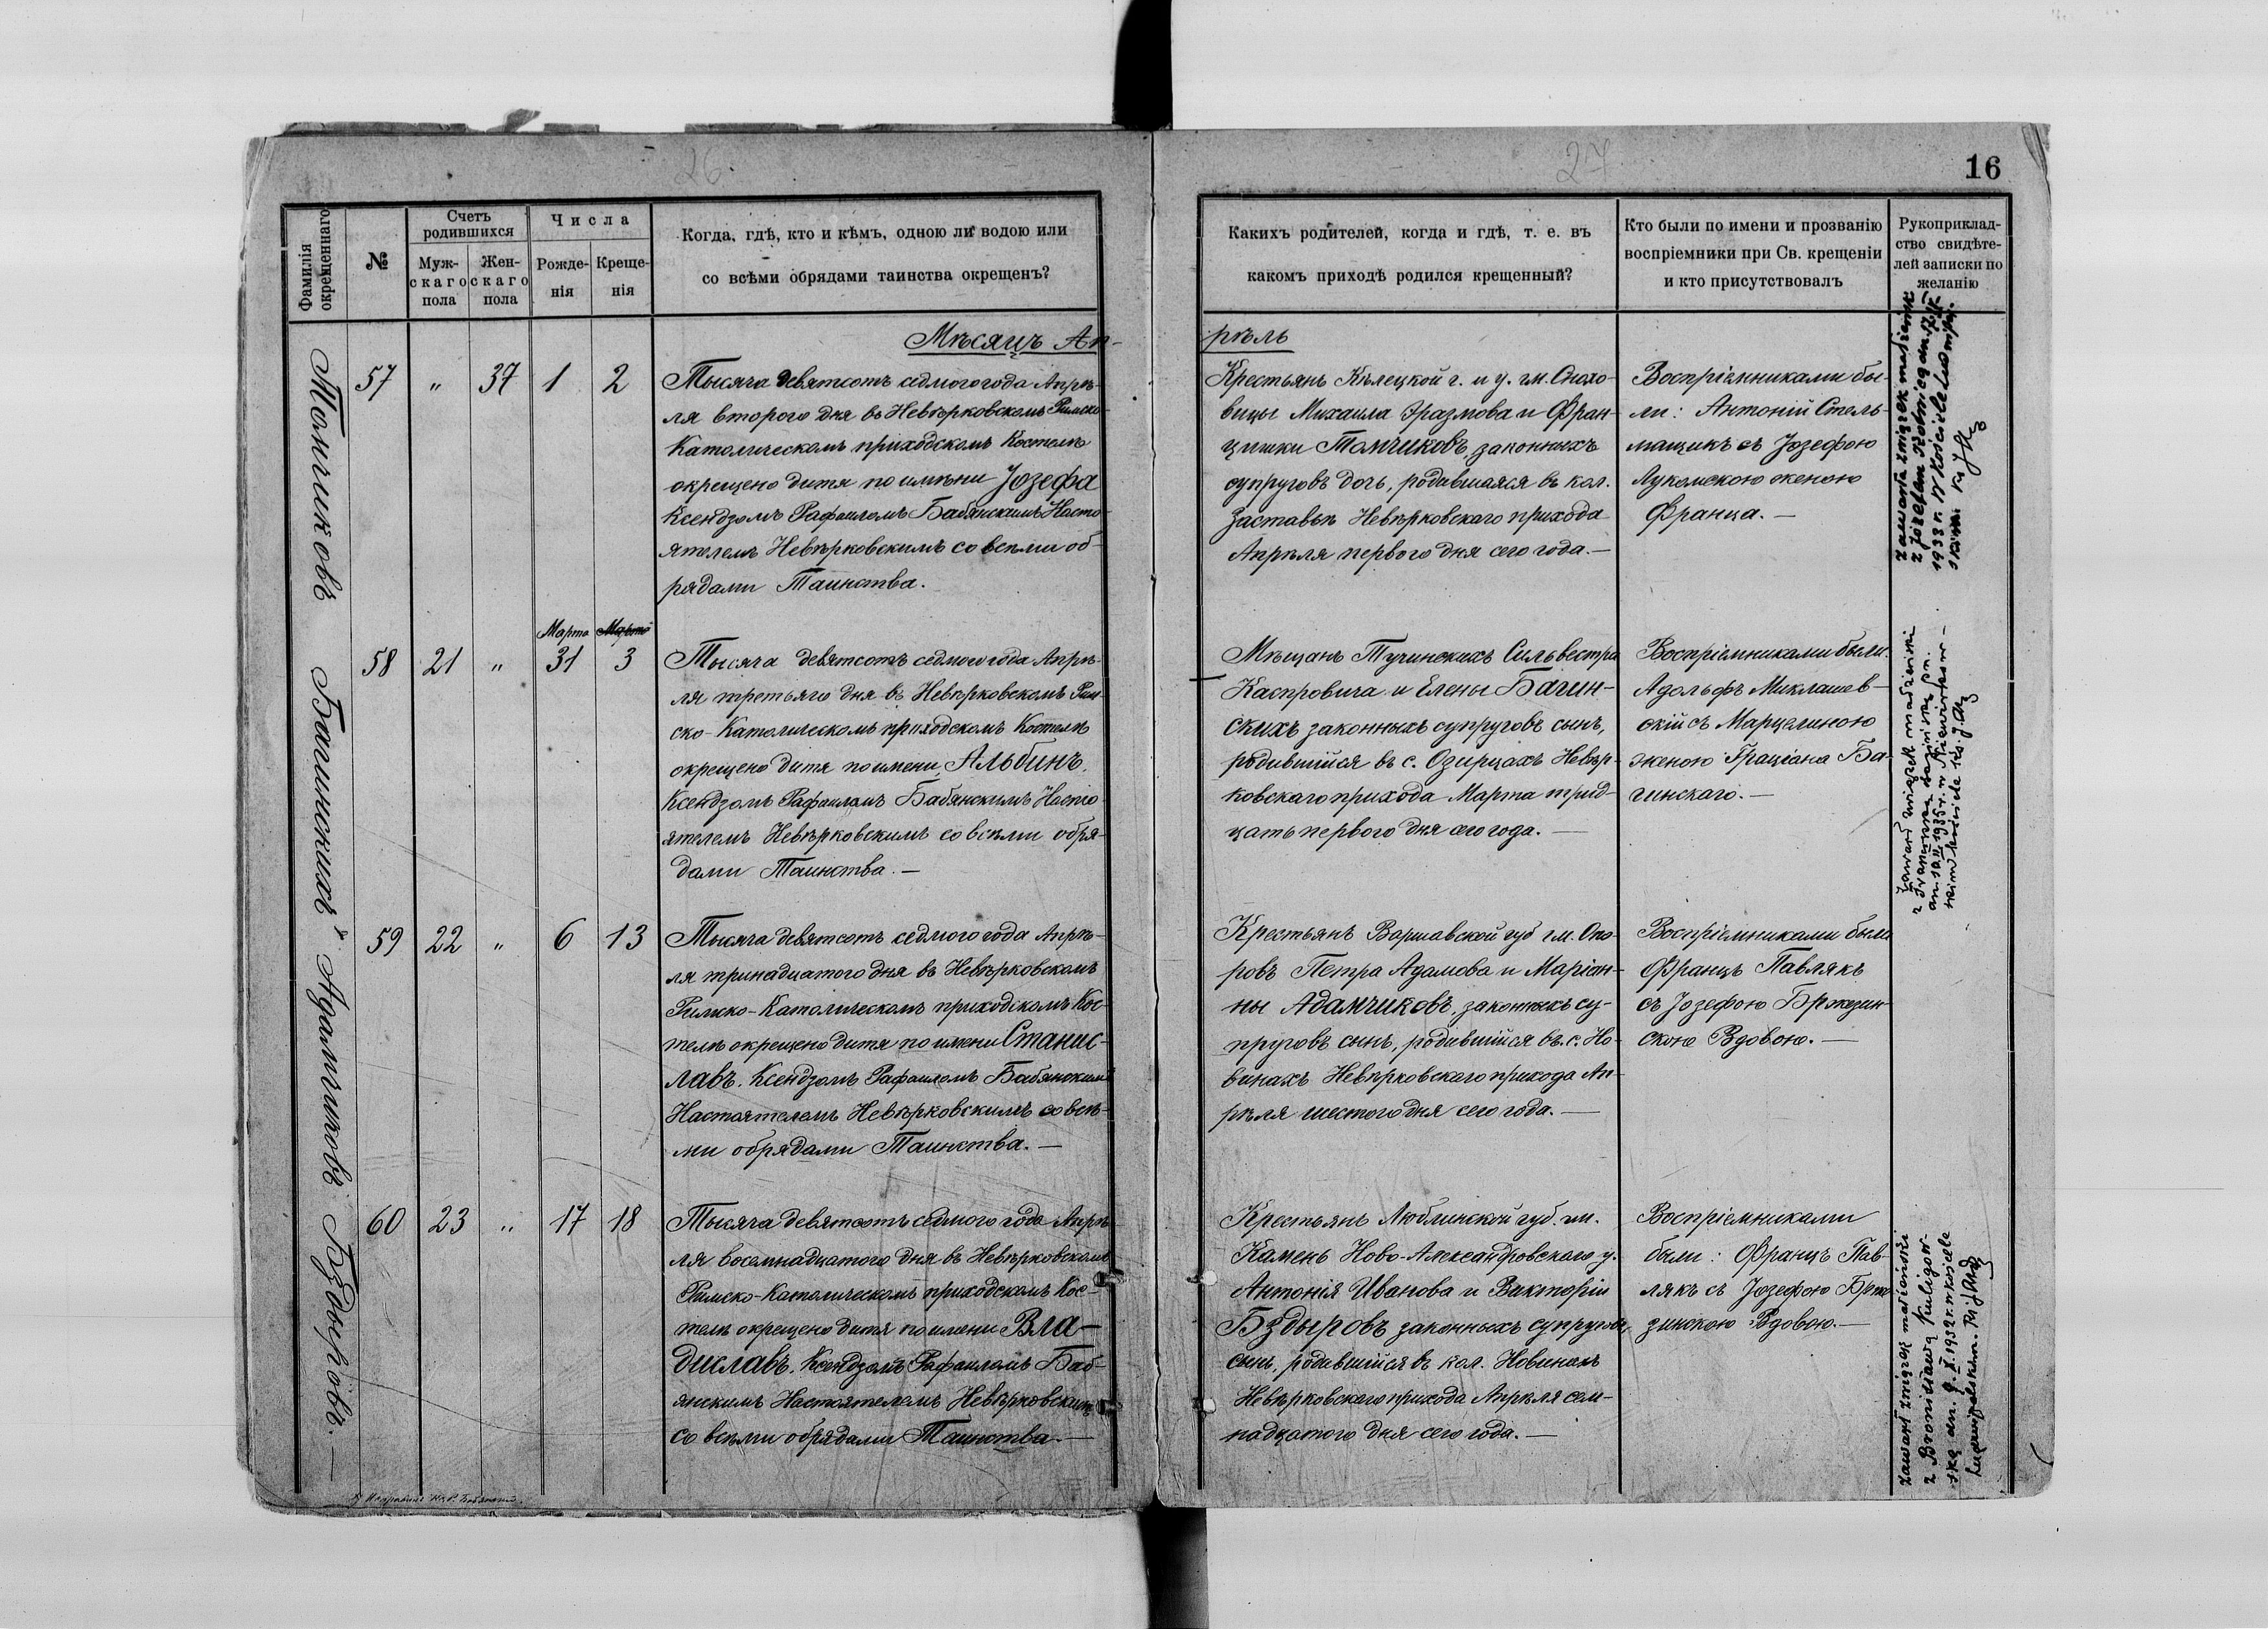 26.
27
16
Фамилія окрещеннаго
№
Счетъ родившихся
Муж-
скаго
пола
Жен-
скаго
пола
Числа
Рожде-
нія
Креще-
нія
Когда, гдѣ, кто и кѣмъ, одною ли водою или
со всѣми обрядами таинства окрещенъ?
Какихъ родителей, когда и гдѣ, т. е. въ
какомъ приходѣ родился крещенный?
Кто были по имени и прозванію
воспріемники при Св. крещеніи
и кто присутствовалъ
Рукоприклад-
ство свидѣте-
лей записки по
желанію
Мѣсяцъ Ап-
рѣль
Томчиковъ
57 " 37 1 2
Тысяча девятсотъ седмого года Апрѣ-
ля второго дня въ Невѣрковскомъ Римско-
Католическомъ приходскомъ Костелѣ
окрещено дитя по имени Јозефа
Ксендзомъ Рафаиломъ Бабянскимъ Насто-
ятелемъ Невѣрковскимъ со всѣми об-
рядами Таинства.
Крестьянъ Кѣлецкой г. и у. гм. Снохо-
вицы Михаила Эразмова и Фран-
цишки Томчиковъ, законныхъ
супруговъ дочь, родившаяся въ кол.
Заставье Невѣрковскаго прихода
Апрѣля первого дня сего года.—
Воспріемниками бы-
ли: Антоній Стель-
мащикъ съ Јозефою
Лукомскою женою
Франца.—
Zawarła związek małżeński
z Józefem
1933 r. w Kościele
Багинскихъ
58 21 " Марта 31 Марта 3
Тысяча девятсотъ седмого года Апрѣ-
ля третьяго дня въ Невѣрковскомъ Рим-
ско-Католическомъ приходскомъ Костелѣ
окрещено дитя по имени Альбинъ.
Ксендзомъ Рафаиломъ Бабянскимъ Насто-
ятелемъ Невѣрковскимъ со всѣми обря-
дами Таинства.—
Мѣщанъ Тучинскихъ Сильвестра
Каспровича и Елены Багин-
скихъ законныхъ супруговъ сынъ,
родившійся въ с. Озирцахъ Невѣр-
ковскаго прихода Марта трид-
цать первого дня сего года.—
Воспріемниками были:
Адольфъ Миклашев-
скій съ Марцелиною
женою Граціана Ба-
гинскаго.—
Zawarł związek małżeński
z
dn. 10.II.1935 r. w Niewirkow-
skim kościele Ks.
Адамчиковъ
59 22 " 6 13
Тысяча девятсотъ седмого года Апрѣ-
ля тринадцатого дня въ Невѣрковскомъ
Римско-Католическомъ приходскомъ Кос-
телѣ окрещено дитя по имени Станис-
лавъ. Ксендзомъ Рафаиломъ Бабянскимъ
Настоятелемъ Невѣрковскимъ со всѣ-
ми обрядами Таинства.—
Крестьянъ Варшавской губ гм. Опо-
ровъ Петра Адамова и Маріан-
ны Адамчиковъ, законныхъ су-
пруговъ сынъ, родившійся въ с. Но-
винахъ Невѣрковскаго прихода Ап-
рѣля шестого дня сего года.—
Воспріемниками были
Францъ Павлякъ
съ Јозефою Бржезин-
скою Вдовою.—
Бздыровъ.—
60 23 " 17 18
Тысяча девятсотъ седмого года Апрѣ-
ля восемнадцатого дня въ Невѣрковскомъ
Римско-Католическомъ приходскомъ Кос-
телѣ окрещено дитя по имени Вла-
диславъ. Ксендзомъ Рафаиломъ Баб-
янскимъ Настоятелемъ Невѣрковскимъ
со всѣми обрядами Таинства.—
Крестьянъ Люблинской губ. гм.
Камень Ново-Александровского у.
Антонія Иванова и Викторіи
Бздыровъ законныхъ супруговъ,
сынъ, родившійся въ кол. Новинахъ
Невѣрковскаго прихода Апрѣля сем-
надцатого дня сего года.—
Воспріемниками
были: Францъ Пав-
лякъ съ Јозефою Брже-
зинскою Вдовою.—
Zawarł związek małżeński
z Bronisławą Kuligow-
ską dn. 1932 r. w kościele